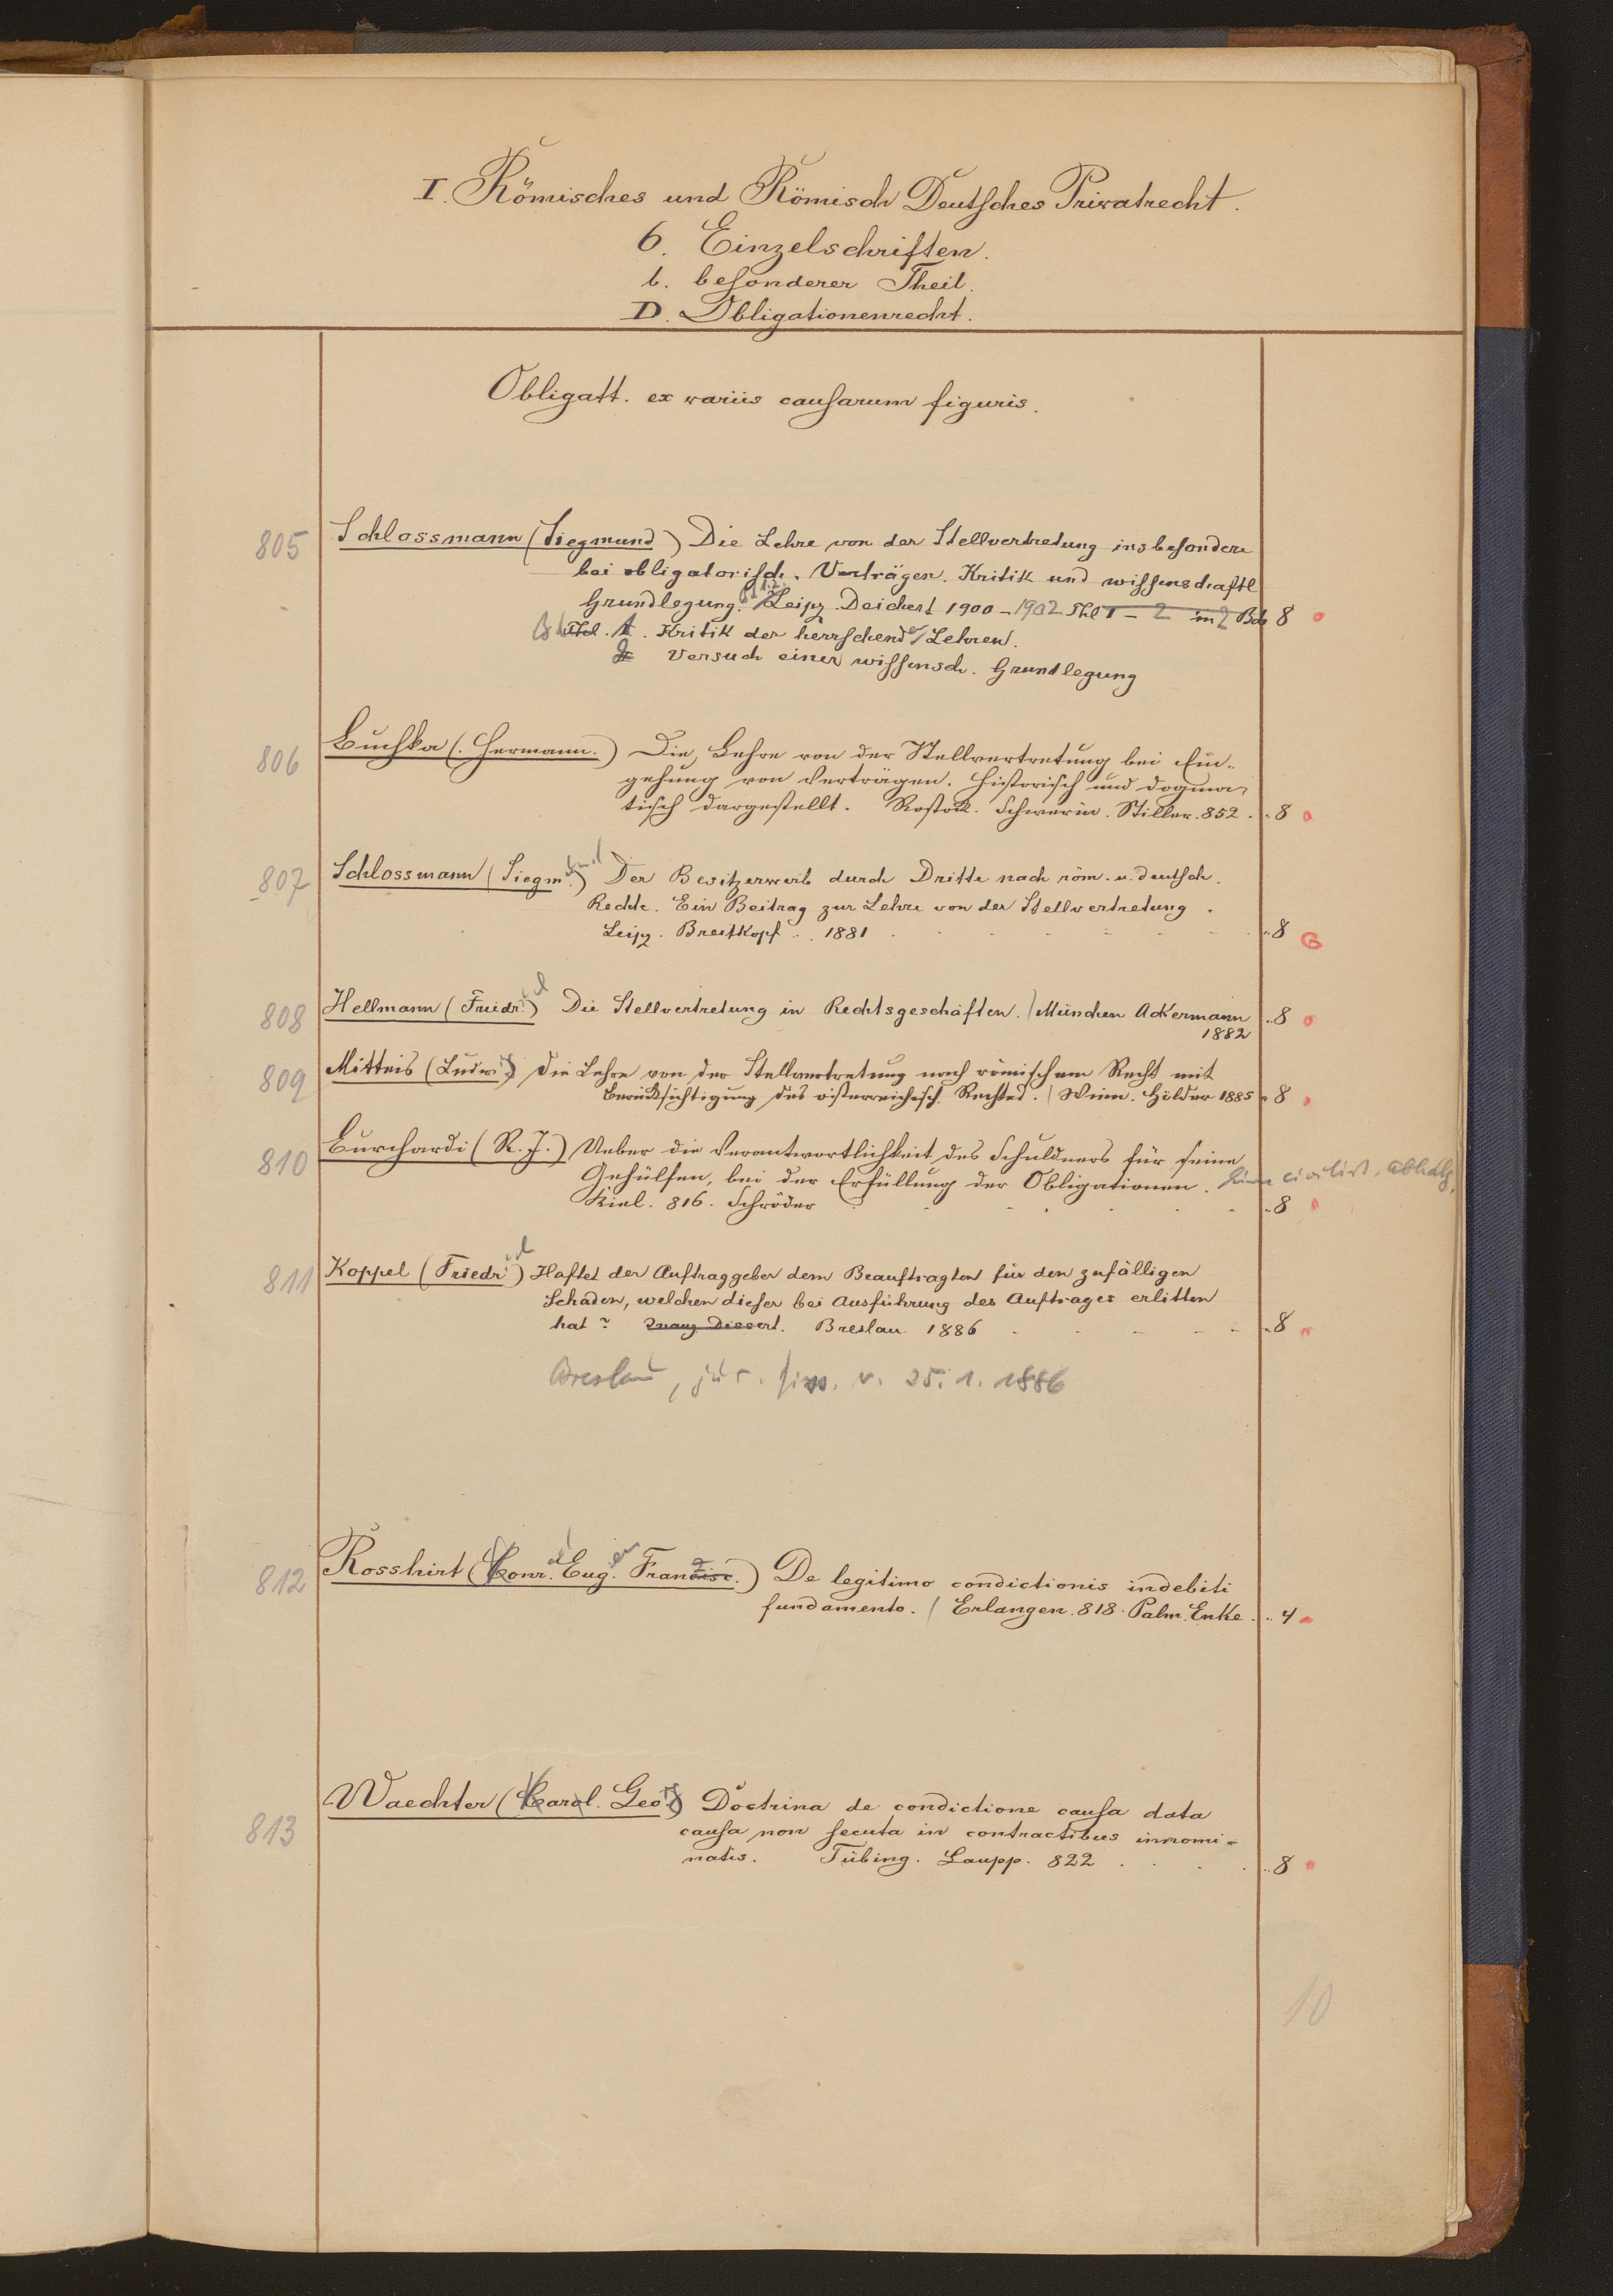 I. Römisches und Römisch Deutsches Privatrecht.
6. Einzelschriften.
b. besonderer Theil.
D. Obligationenrecht.
Obligatt. ex variis causarum figuris.
805 Schlossmann (Siegmund) Die Lehre von der Stellvertretung insbesondere
bei obligatorisch. Verträgen. Kritik und wissenschaftl
Grundlegung. Bd 1.2. Leipz. Deichert 1900-1902 Thl 1 - 2 in 2 Bde 8
Bd Thl. 1. Kritik der herrschenden Lehren.
2 Versuch einer wissensch. Grundlegung
806 Buchka (Hermann.) Die Lehre von der Stellvertretung bei Ein-
gehung von Verträgen. Historisch und dogma-
tisch dargestellt. Rostock. Schwerin. Stiller. 852. .. 8
807 Schlossmann (Siegmund) Der Besitzerwerb durch Dritte nach röm. u. deutsch.
Recht. Ein Beitrag zur Lehre von der Stellvertretung.
Leipz. Breitkopf .. 1881 .. 8
808 Hellmann (Friedrich) Die Stellvertretung in Rechtsgeschäften. / München Ackermann .. 8
1882
809 Mitteis (Ludwig) Die Lehre von der Stellvertretung nach römischem Recht mit
Berücksichtigung des österreichisch. Rechtes. / Wien. Hölder 1885 .. 8
810 Burchardi (R. J.) Ueber die Verantwortlichkeit des Schuldners für seine
Gehülfen, bei der Erfüllung der Obligationen. civilist. Abhdlg.
Kiel. 816. Schröder .. 8
811 Koppel (Friedrich) Haftet der Auftraggeber dem Beauftragten für den zufälligen
Schaden, welchen dieser bei Ausführung des Auftrages erlitten
hat? Inaug Dissert. Breslau 1886 .. 8
Breslau, jur. Diss. v. 25. 1. 1886
812 Rosshirt (Konrad Eugen Franz) De legitimo condictionis indebiti
fundamento. / Erlangen. 818. Palm. Enke. .. 4
813 Waechter (Karl Georg) Doctrina de condictione causa data
causa non secuta in contractibus innomi=
natis. Tübing. Laupp. 822 .. 8
10